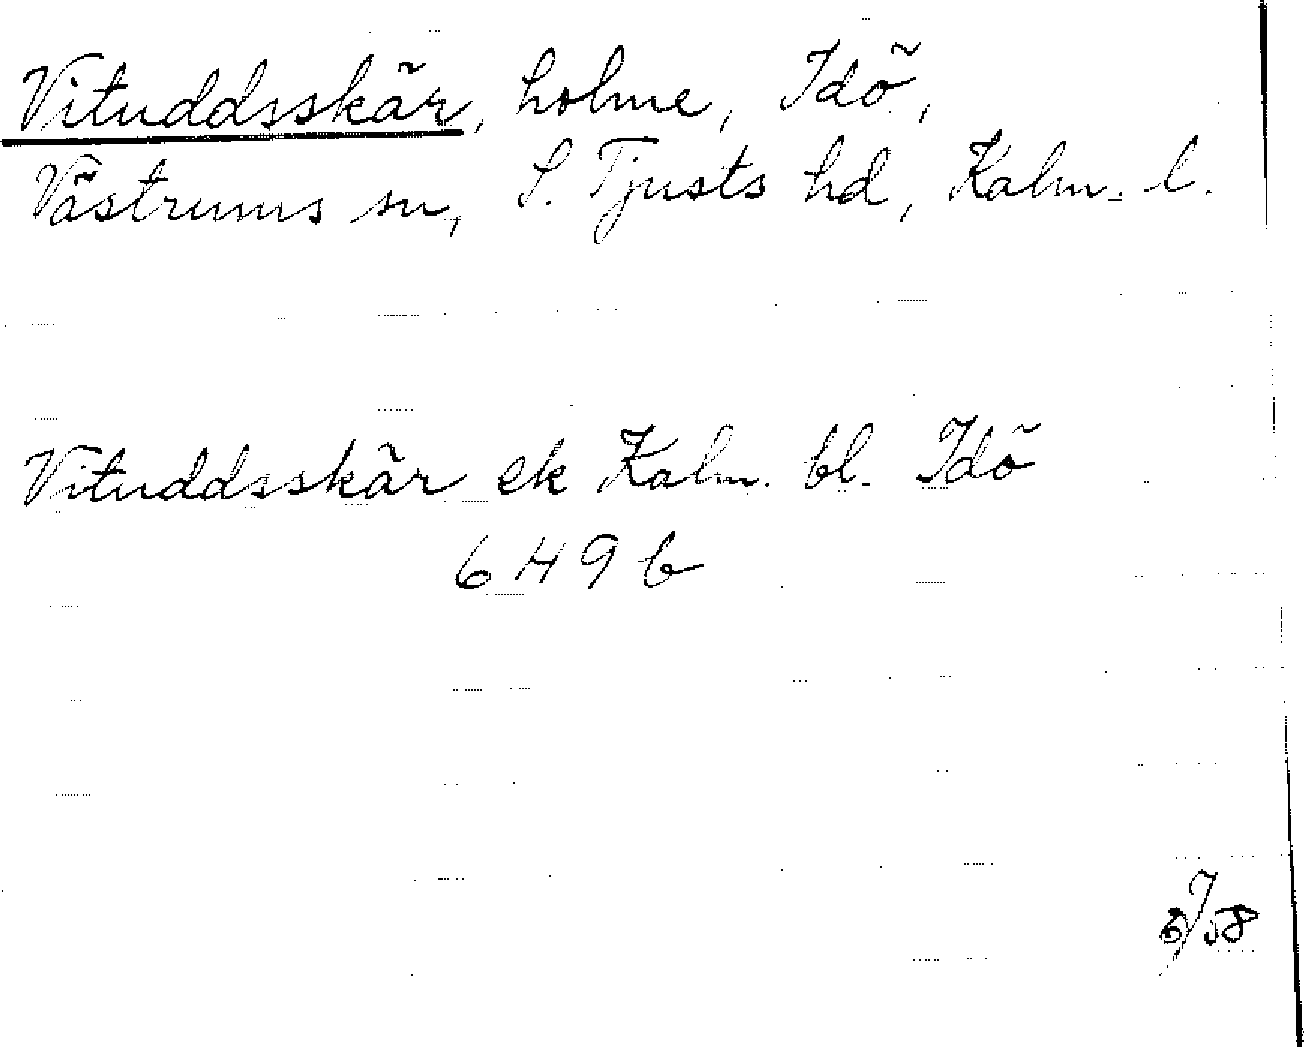 Vituddsskär, holme, Idö,
Västrums sn, S. Tjusts hd, Kalm. l.
Vituddsskär ek Kalm. bl. Idö
6 H 9 b